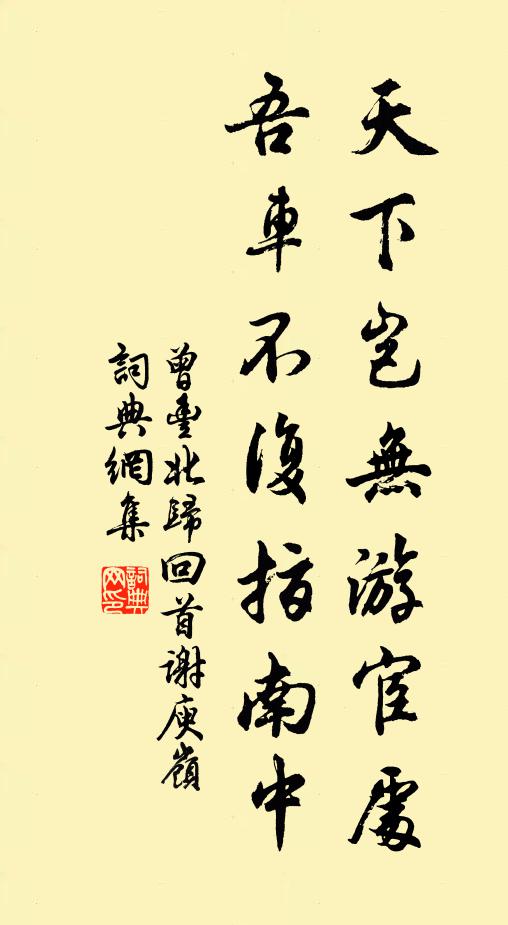 天下豈無游宦處
吾車不復指南中
曾豐北歸回首謝庾嶺
詞典網集
詞典網印